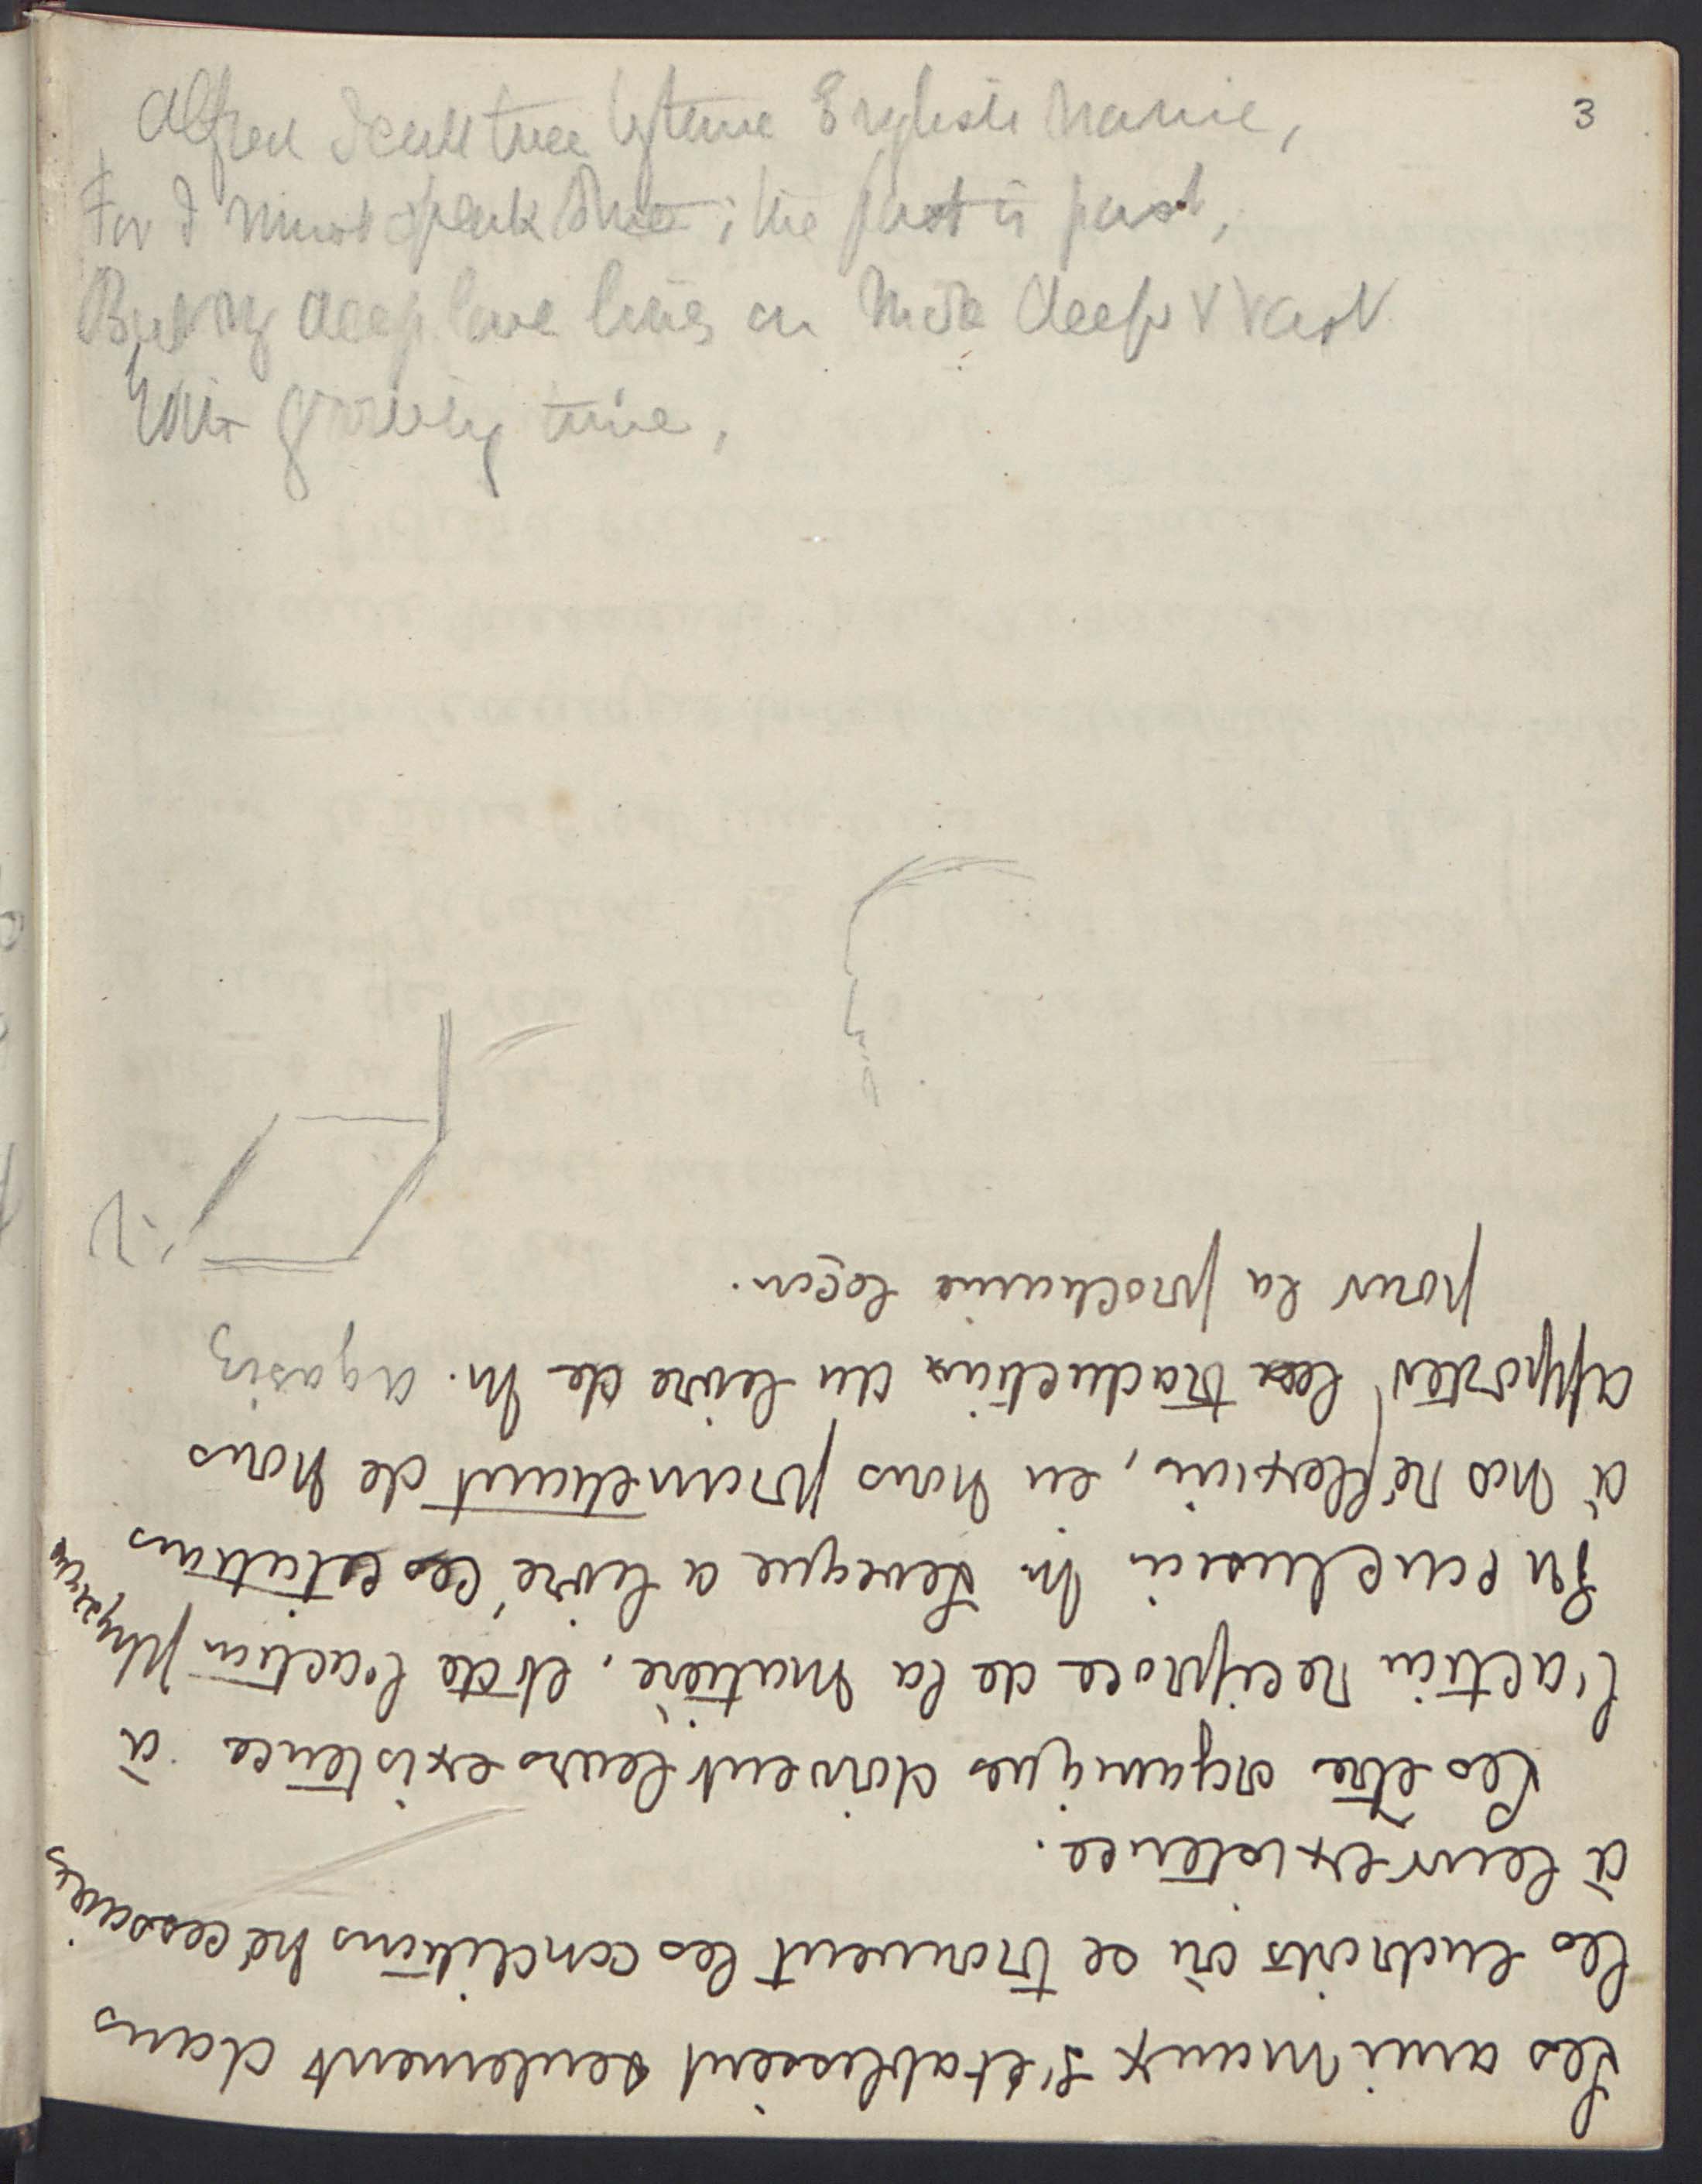 3
Alfred I call thee by thine English name,
For I must speak Once; the past is past,
But my deep love lives on More deep & vast
With growing time,
Les animaux s'établissent seulement dans
les endroits où se trouvent les conditions nécessaires
à leur existence.
Les être organiques doivent leurs existence à
l'action reciproce de la matière, et de l'action physique
En conclusion M. Leveque a livré ces citations
à nos réflexions, en nous promettant de nous
apporter les traductions du livre de M. Agasiz
pour la prochaine leçon.